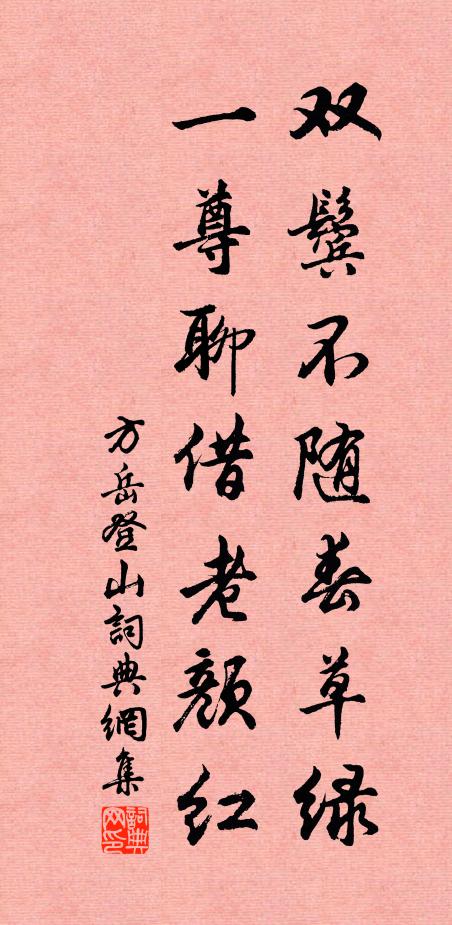 双鬓不随春草绿
一尊聊借老颜红
方岳登山詞典網集
詞典網印